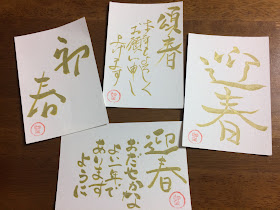 初春
頌春
本年もよろしく
お願い申し
上げます
迎春
迎春
おだやかな
よい一年で
あります
ように